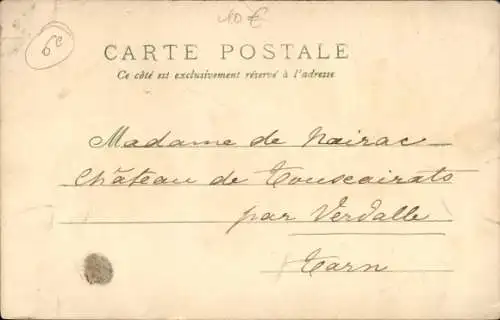 40 €
6e
CARTE POSTALE
Ce côté est exclusivement réservé à l'adresse
Madame de Nairac
Château de Touscairats
par Verdalle
Tarn